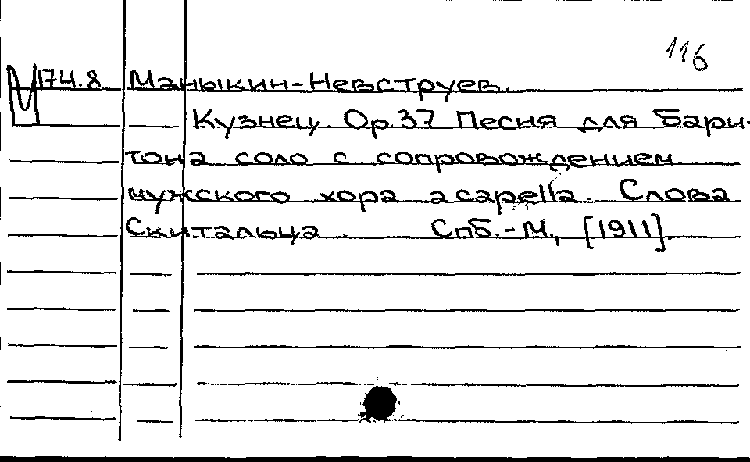 116
М 174.8 Маныкин-Невструев.
Кузнец. Ор.37 Песня для Бари-
тона соло с сопровождением
мужского хора a capella. Слова
Скитальца. Спб.-М., [1911].